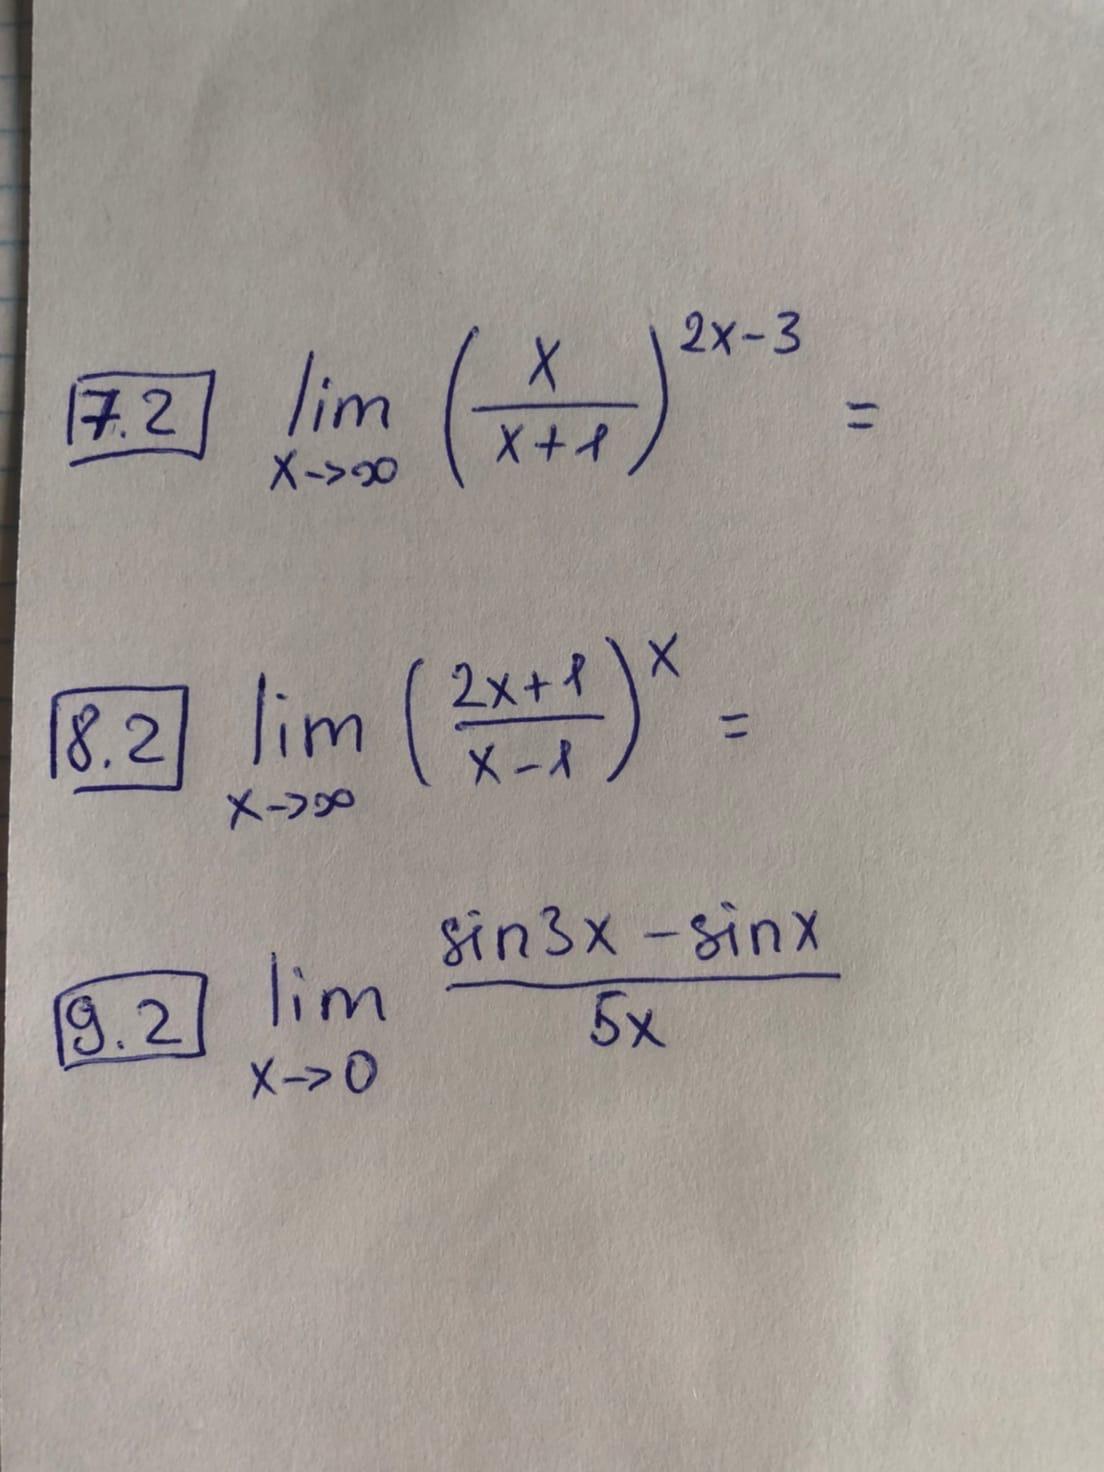 7.2 lim x→∞ (x/(x+1))^(2x-3) =
8.2 lim x→∞ ((2x+1)/(x-1))^x =
9.2 lim x→0 (sin3x - sinx)/(5x)